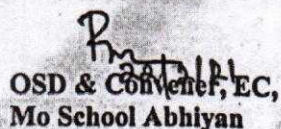 OSD & Convener, EC,
Mo School Abhiyan